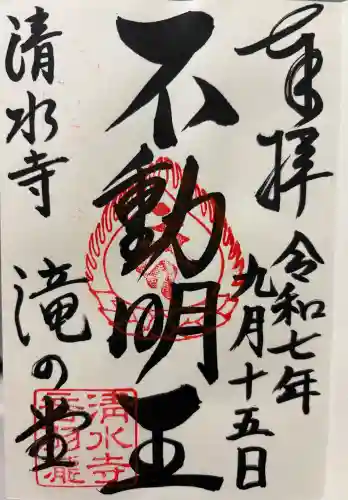 奉拝
令和七年
九月十五日
不動明王
清水寺
滝の堂
清水寺
音羽瀧